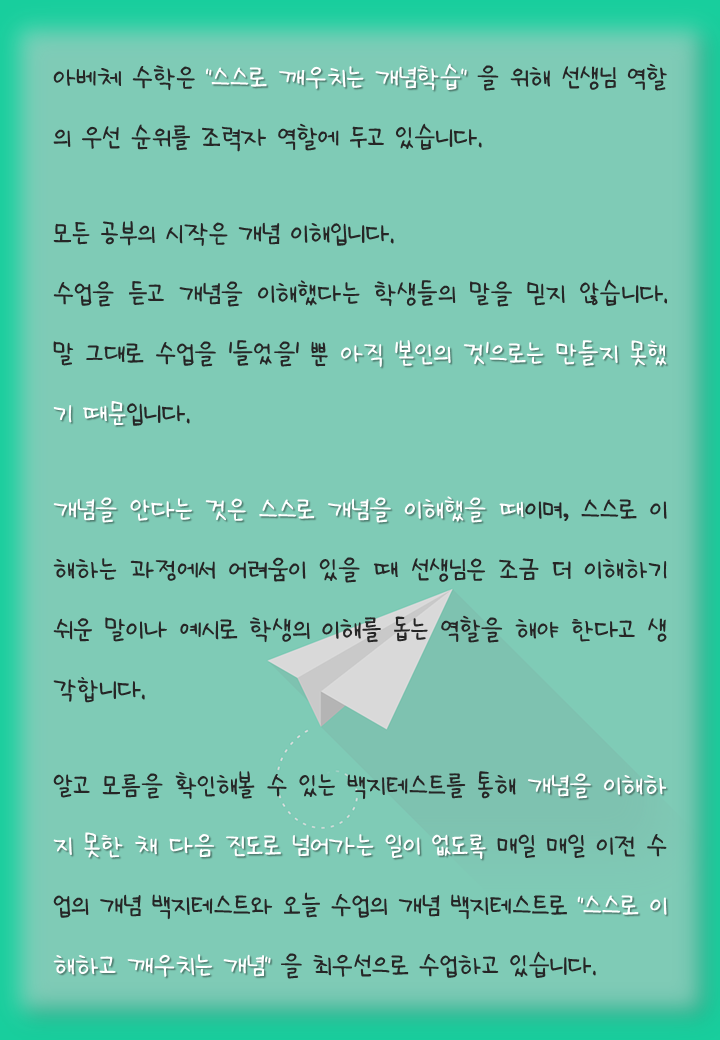 아베체 수학은 "스스로 깨우치는 개념학습" 을 위해 선생님 역할
의 우선 순위를 조력자 역할에 두고 있습니다.
모든 공부의 시작은 개념 이해입니다.
수업을 듣고 개념을 이해했다는 학생들의 말을 믿지 않습니다.
말 그대로 수업을 '들었을' 뿐 아직 '본인의 것'으로는 만들지 못했
기 때문입니다.
개념을 안다는 것은 스스로 개념을 이해했을 때이며, 스스로 이
해하는 과정에서 어려움이 있을 때 선생님은 조금 더 이해하기
쉬운 말이나 예시로 학생의 이해를 돕는 역할을 해야 한다고 생
각합니다.
알고 모름을 확인해볼 수 있는 백지테스트를 통해 개념을 이해하
지 못한 채 다음 진도로 넘어가는 일이 없도록 매일 매일 이전 수
업의 개념 백지테스트와 오늘 수업의 개념 백지테스트로 "스스로 이
해하고 깨우치는 개념" 을 최우선으로 수업하고 있습니다.